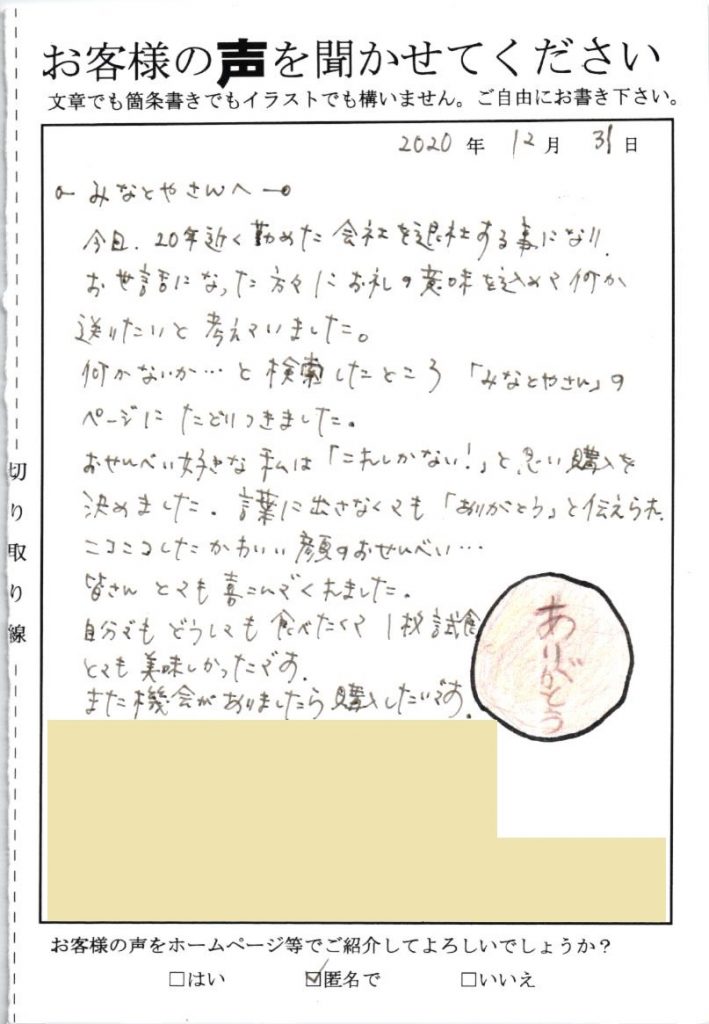 お客様の声を聞かせてください
文章でも箇条書きでもイラストでも構いません。ご自由にお書き下さい。
2020年 12月 31日
みなとやさんへ
今日、20年近く勤めた会社を退社する事になり、
お世話になった方々にお礼の意味を込めて何か
送りたいと考えていました。
何かないか…と検索したところ「みなとやさん」の
ページにたどりつきました。
おせんべい好きな私は「これしかない!」と思い購入を
決めました。言葉に出さなくても「ありがとう」と伝えられ、
ニコニコしたかわいい顔のおせんべい…
皆さんとても喜こんでくれました。
自分でもどうしても食べたくて1枚試食
とても美味しかったです。
また機会がありましたら購入したいです。
ありがとう
切り取り線
お客様の声をホームページ等でご紹介してよろしいでしょうか?
□はい ☑匿名で □いいえ